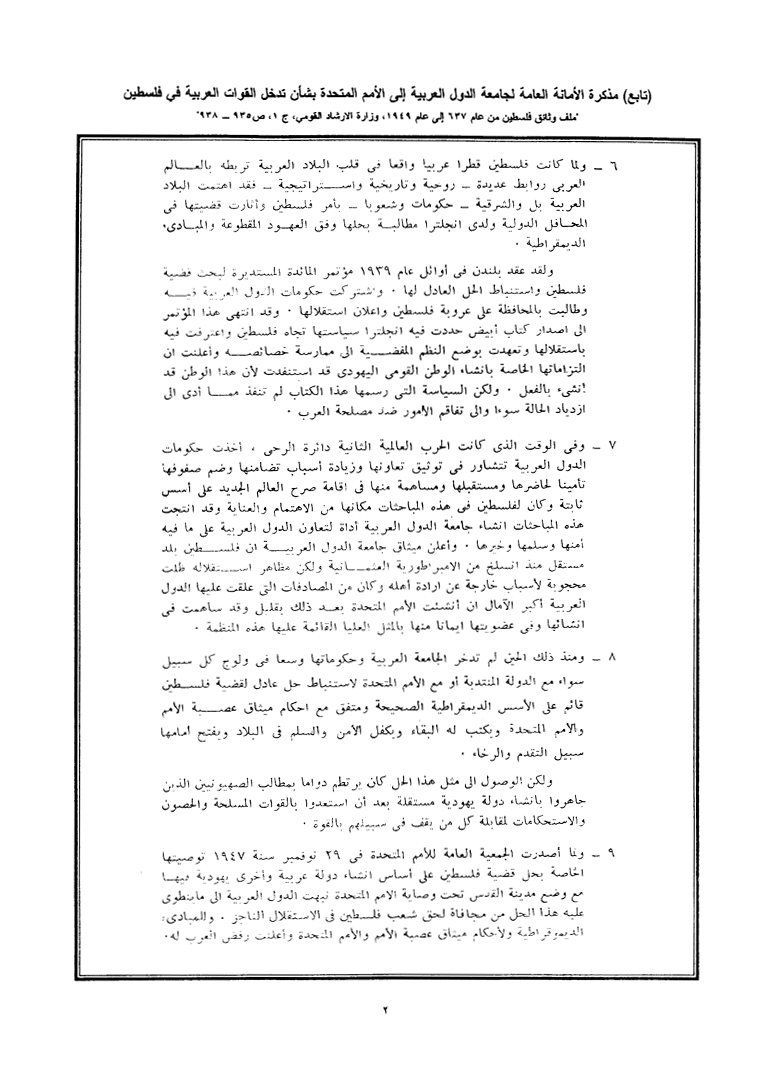 (تابع) مذكرة الأمانة العامة لجامعة الدول العربية إلى الأمم المتحدة بشأن تدخل القوات العربية في فلسطين
"ملف وثائق فلسطين من عام ٦٣٧ إلى عام ١٩٤٩، وزارة الارشاد القومي، ج ١، ص٩٣٥ – ٩٣٨"
٦ – ولما كانت فلسطين قطرا عربيا واقعا فى قلب البلاد العربية تربطه بالعالم
العربى روابط عديدة – روحية وتاريخية واستراتيجية – فقد اهتمت البلاد
العربية بل والشرقية – حكومات وشعوبا – بأمر فلسطين وأثارت قضيتها فى
المحافل الدولية ولدى انجلترا مطالبة بحلها وفق العهود المقطوعة والمبادىء
الديمقراطية ٠
ولقد عقد بلندن فى أوائل عام ١٩٣٩ مؤتمر المائدة المستديرة لبحث قضية
فلسطين واستنباط الحل العادل لها ٠ واشتركت حكومات الدول العربية فيه
وطالبت بالمحافظة على عروبة فلسطين واعلان استقلالها ٠ وقد انتهى هذا المؤتمر
الى اصدار كتاب أبيض حددت فيه انجلترا سياستها تجاه فلسطين واعترفت فيه
باستقلالها وتعهدت بوضع النظم المفضية الى ممارسة خصائصه وأعلنت ان
التزاماتها الخاصة بانشاء الوطن القومى اليهودى قد استنفدت لأن هذا الوطن قد
أنشىء بالفعل ٠ ولكن السياسة التى رسمها هذا الكتاب لم تنفذ مما أدى الى
ازدياد الحالة سوءا والى تفاقم الأمور ضد مصلحة العرب ٠
٧ – وفى الوقت الذى كانت الحرب العالمية الثانية دائرة الرحى ، أخذت حكومات
الدول العربية تتشاور فى توثيق تعاونها وزيادة أسباب تضامنها وضم صفوفها
تأمينا لحاضرها ومستقبلها ومساهمة منها فى اقامة صرح العالم الجديد على أسس
ثابتة وكان لفلسطين فى هذه المباحثات مكانها من الاهتمام والعناية وقد انتجت
هذه المباحثات انشاء جامعة الدول العربية أداة لتعاون الدول العربية على ما فيه
أمنها وسلمها وخيرها ٠ وأعلن ميثاق جامعة الدول العربية ان فلسطين بلد
مستقل منذ انسلخ من الامبراطورية العثمانية ولكن مظاهر استقلاله ظلت
محجوبة لأسباب خارجة عن ارادة أهله وكان من المصادفات التى علقت عليها الدول
العربية أكبر الآمال ان أنشئت الأمم المتحدة بعد ذلك بقليل وقد ساهمت فى
انشائها وفى عضويتها ايمانا منها بالمثل العليا القائمة عليها هذه المنظمة ٠
٨ – ومنذ ذلك الحين لم تدخر الجامعة العربية وحكوماتها وسعا فى ولوج كل سبيل
سواء مع الدولة المنتدبة أو مع الأمم المتحدة لاستنباط حل عادل لقضية فلسطين
قائم على الأسس الديمقراطية الصحيحة ومتفق مع احكام ميثاق عصبة الأمم
والأمم المتحدة ويكتب له البقاء ويكفل الأمن والسلم فى البلاد ويفتح أمامها
سبيل التقدم والرخاء ٠
ولكن الوصول الى مثل هذا الحل كان يرتطم دواما بمطالب الصهيونيين الذين
جاهروا بانشاء دولة يهودية مستقلة بعد أن استعدوا بالقوات المسلحة والحصون
والاستحكامات لمقابلة كل من يقف فى سبيلهم بالقوة ٠
٩ – ولما أصدرت الجمعية العامة للأمم المتحدة فى ٢٩ نوفمبر سنة ١٩٤٧ توصيتها
الخاصة بحل قضية فلسطين على أساس انشاء دولة عربية وأخرى يهودية فيها
مع وضع مدينة القدس تحت وصاية الامم المتحدة نبهت الدول العربية الى ماينطوى
عليه هذا الحل من مجافاة لحق شعب فلسطين فى الاستقلال الناجز ٠ وللمبادىء
الديموقراطية ولأحكام ميثاق عصبة الأمم والأمم المتحدة وأعلنت رفض العرب له٠
٢